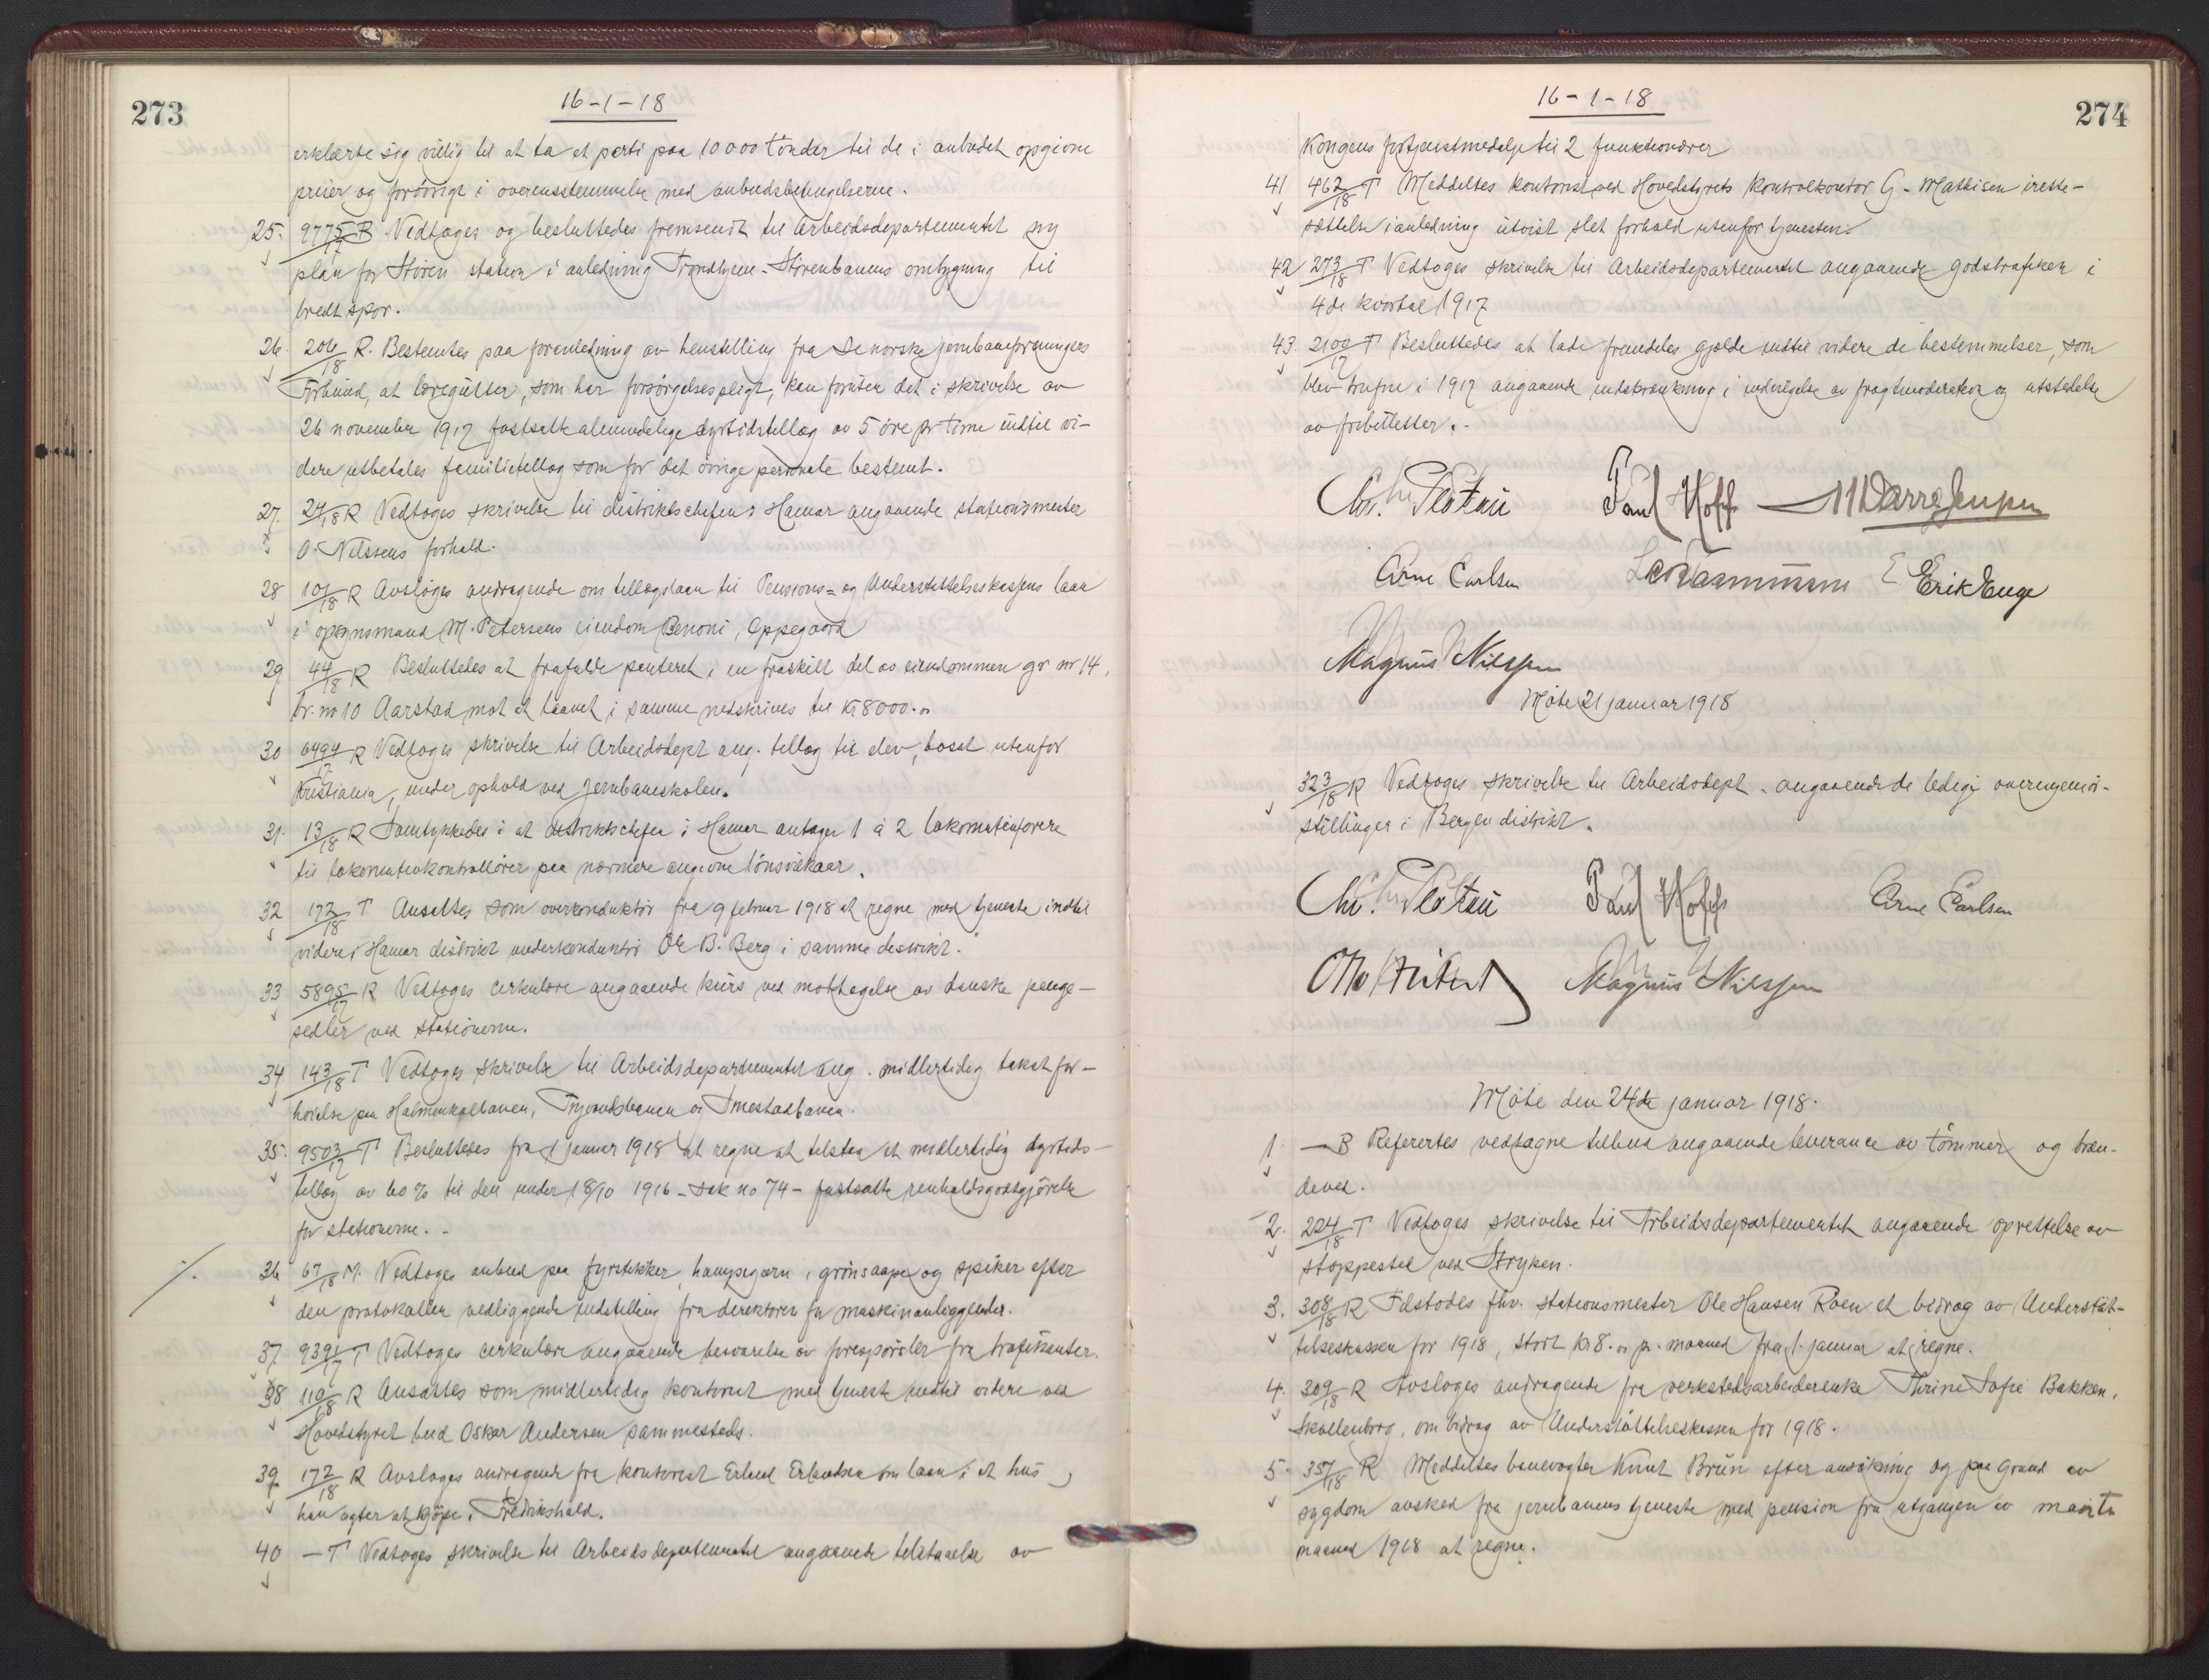 273
16-1-18
erklærte sig villig til at ta et parti paa 10000 tønder til de i anbudet opgivne
priser og forøvrigt i overensstemmelse med anbudsbetingelserne.
25. 9775/17 B Vedtoges og besluttedes fremsendt til Arbeidsdepartementet ny
plan for Støren station i anledning Trondhjem-Størenbanens ombygning til
bredt spor.
26. 206/18 R. Bestemtes paa foranledning av henstilling fra De norske jernbaneforeningers
Forbund, at læregutter, som har forsørgelsespligt, kan foruten det i skrivelse av
26 november 1917 fastsatte almindelige dyrtidstillæg av 5 øre pr time indtil vi-
dere utbetales familietillæg som for det øvrige personale bestemt.
27. 24/18 R Vedtoges skrivelse til distriktschefen i Hamar angaaende stationsmester
O. Nilssens forhold.
28 101/18 R Avsloges andragende om tillægslaan til Pensions- og Understøttelseskassens laan
i opsynsmand M. Petersens eiendom Benoni, Oppegaard
29. 44/18 R Besluttedes at frafalde panteret i en fraskilt del av eiendommen gr nr 14,
br. nr 10 Aarstad mot at laanet i samme nedskrives til kr 8000.00
30 6494/17 R Vedtoges skrivelse til Arbeidsdept ang. tillæg til elev, bosat utenfor
Kristiania, under ophold ved Jernbaneskolen.
31. 13/18 R Samtykkedes i at distriktschefen i Hamar antager 1 à 2 lokomotivførere
til lokomotivkontrollører paa nærmere angivne lønsvilkaar.
32 172/18 T Ansattes som overkonduktør fra 9 februar 1918 at regne med tjeneste indtil
videre i Hamar distrikt underkonduktør Ole B. Berg i samme distrikt.
33 5895/17 R Vedtoges cirkulære angaaende kurs ved mottagelse av danske penge-
sedler ved stationerne.
34 143/18 T Vedtoges skrivelse til Arbeidsdepartementet ang. midlertidig takstfor-
høielse paa Holmenkolbanen, Tryvandsbanen og Smestadbanen.
35. 9503/17 T Besluttedes fra 1 januar 1918 at regne at tilstaa et midlertidig dyrtids-
tillæg av 60 % til den under 18/10 1916 - sak no 74 - fastsatte renholdsgodtgjørelse
for stationerne. -
36 67/18 M. Vedtoges anbud paa fyrstikker, hampegarn, grønsaape og spiker efter
den protokollen vedliggende indstilling fra direktøren for maskinanliggender.
37. 9391/17 T Vedtoges cirkulære angaaende besvarelse av forespørsler fra trafikanter.
38 110/18 R Ansattes som midlertidig kontorist med tjeneste indtil videre ved
Hovedstyret bud Oskar Andersen sammesteds.
39. 172/18 R Avsloges andragende fra kontorist Erland Erlandsen om laan i et hus
han agter at kjøpe i Fredrikshald.
40 - T Vedtoges skrivelse til Arbeidsdepartementet angaaende tilstaaelse av
274
16-1-18
Kongens fortjenstmedalje til 2 funktionærer
41 462/18 T Meddeltes kontorist ved Hovedstyrets Kontrolkontor G. Mathisen irette-
sættelse i anledning utvist slet forhold utenfor tjenesten.
42 273/18 T Vedtoges skrivelse til Arbeidsdepartementet angaaende godstrafiken i
4de kvartal 1917
43. 2100/17 T Besluttedes at lade fremdeles gjælde indtil videre de bestemmelser, som
blev trufne i 1917 angaaende indskrænkning i indrømmelse av fragtmoderation og utstedelse
av fribilletter. -
Chr. Platou Paul Hoff
Arne Carlsen Erik Enge
Magnus Nilssen
Møte 21 januar 1918
323/18 R Vedtoges skrivelse til Arbeidsdept. angaaende de ledige overingeniør-
stillinger i Bergen distrikt.
Chr. Platou Paul Hoff Arne Carlsen
Magnus Nilssen
Møte den 24de januar 1918.
1. - B Refertes vedtagne tilbud angaaende leverance av tømmer og bræn-
deved.
2. 224/18 T Vedtoges skrivelse til Arbeidsdepartementet angaaende oprettelse av
stoppested ved Stryken.
3. 308/18 R Tilstodes fhv. stationsmester Ole Hansen Roen et bidrag av Understøt-
telseskassen for 1918, stort kr 8.00 pr. maaned fra 1. januar at regne.
4. 309/18 R Avsloges andragende fra verkstedsarbeiderenke Thrine Sofie Bakken,
Skollenborg, om bidrag av Understøttelseskassen for 1918.
5. 357/18 R Meddeltes banevogter Knut Brun efter ansøkning og paa grund av
sygdom avsked fra jernbanens tjeneste med pension fra utgangen av marts
maaned 1918 at regne.